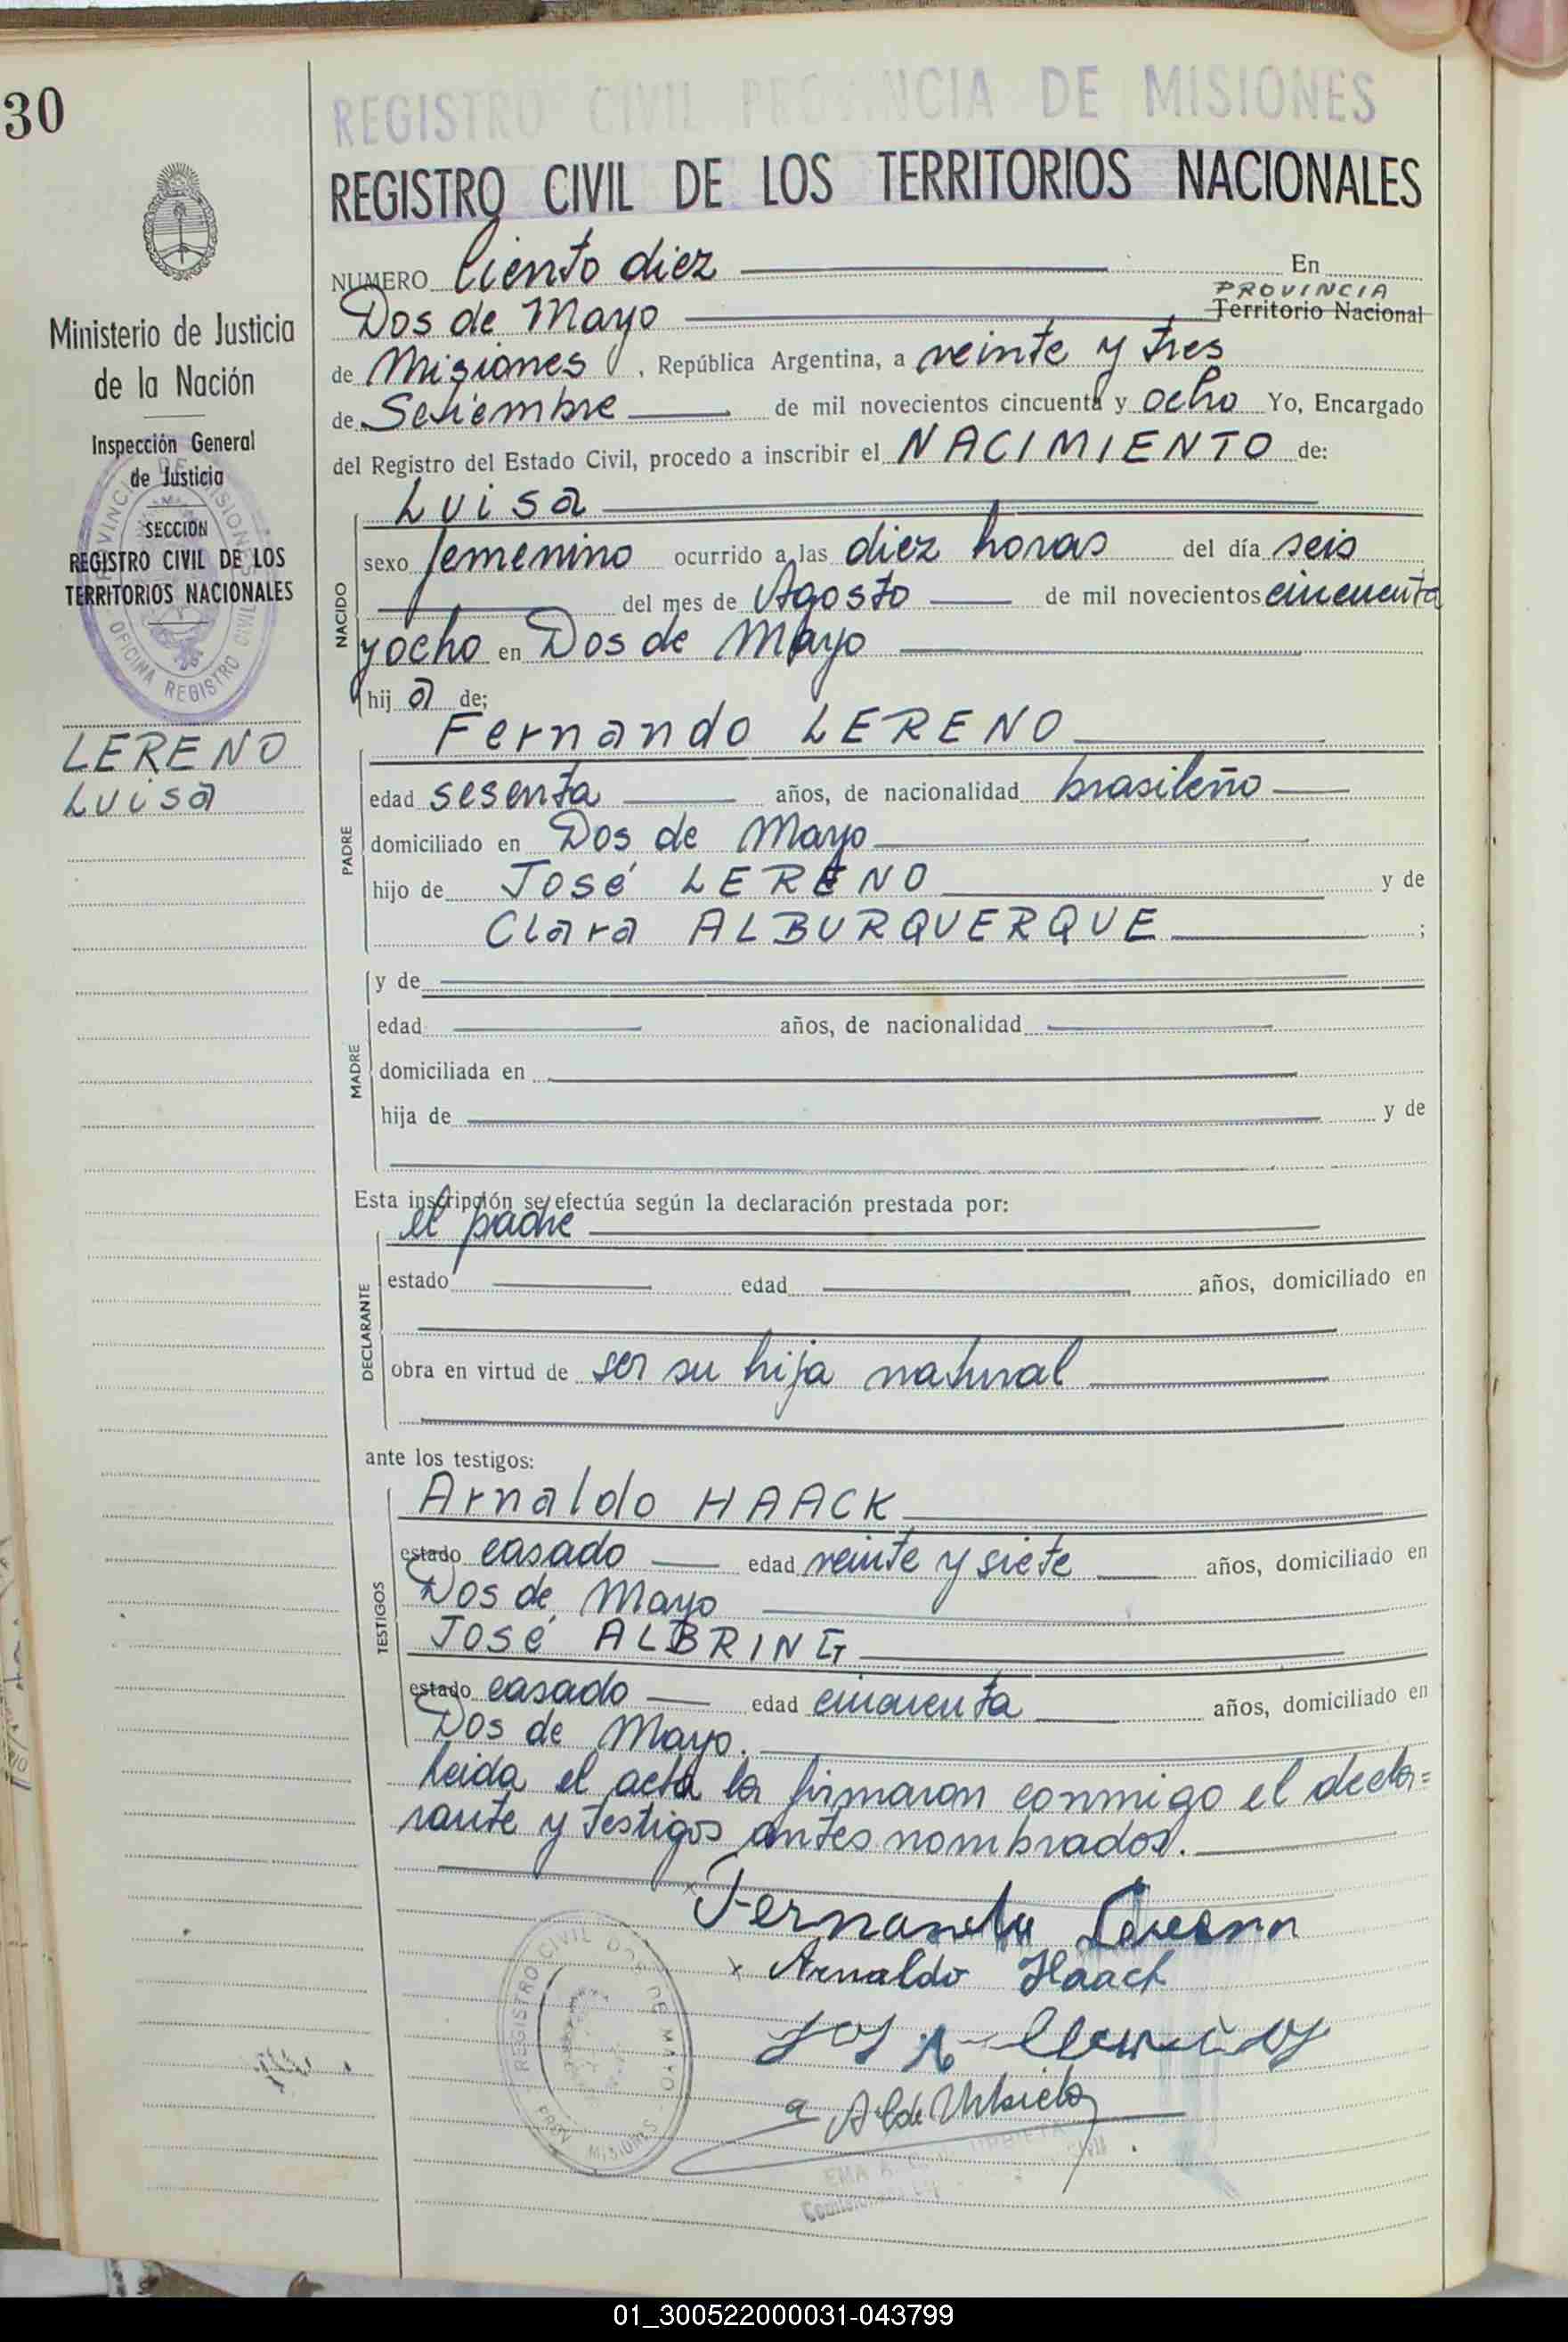 30
REGISTRO CIVIL PROVINCIA DE MISIONES
REGISTRO CIVIL DE LOS TERRITORIOS NACIONALES
Ministerio de Justicia
de la Nación
Inspección General
de Justicia
SECCION
REGISTRO CIVIL DE LOS
TERRITORIOS NACIONALES
PROVINCIA DE MISIONES
OFICINA REGISTRO CIVIL
LERENO
Luisa
NUMERO Ciento diez En
Dos de Mayo PROVINCIA
Territorio Nacional
de Misiones, República Argentina, a veinte y tres
de Setiembre de mil novecientos cincuenta y ocho Yo, Encargado
del Registro del Estado Civil, procedo a inscribir el NACIMIENTO de:
NACIDO
Luisa
sexo femenino ocurrido a las diez horas del día seis
del mes de Agosto de mil novecientos cincuenta
y ocho en Dos de Mayo
hija de;
PADRE
Fernando LERENO
edad sesenta años, de nacionalidad brasileño
domiciliado en Dos de Mayo
hijo de José LERENO y de
Clara ALBURQUERQUE ;
MADRE
y de
edad años, de nacionalidad
domiciliada en
hija de y de
Esta inscripción se efectúa según la declaración prestada por:
DECLARANTE
el padre
estado edad años, domiciliado en
obra en virtud de ser su hija natural
ante los testigos:
TESTIGOS
Arnaldo HAACK
estado casado edad veinte y siete años, domiciliado en
Dos de Mayo
José ALBRING
estado casado edad cincuenta años, domiciliado en
Dos de Mayo.
Leida el acta la firmaron conmigo el decla=
rante y testigos antes nombrados.
Fernando Lereno
Arnaldo Haack
REGISTRO CIVIL DOS DE MAYO
PROV. MISIONES
01_300522000031-043799